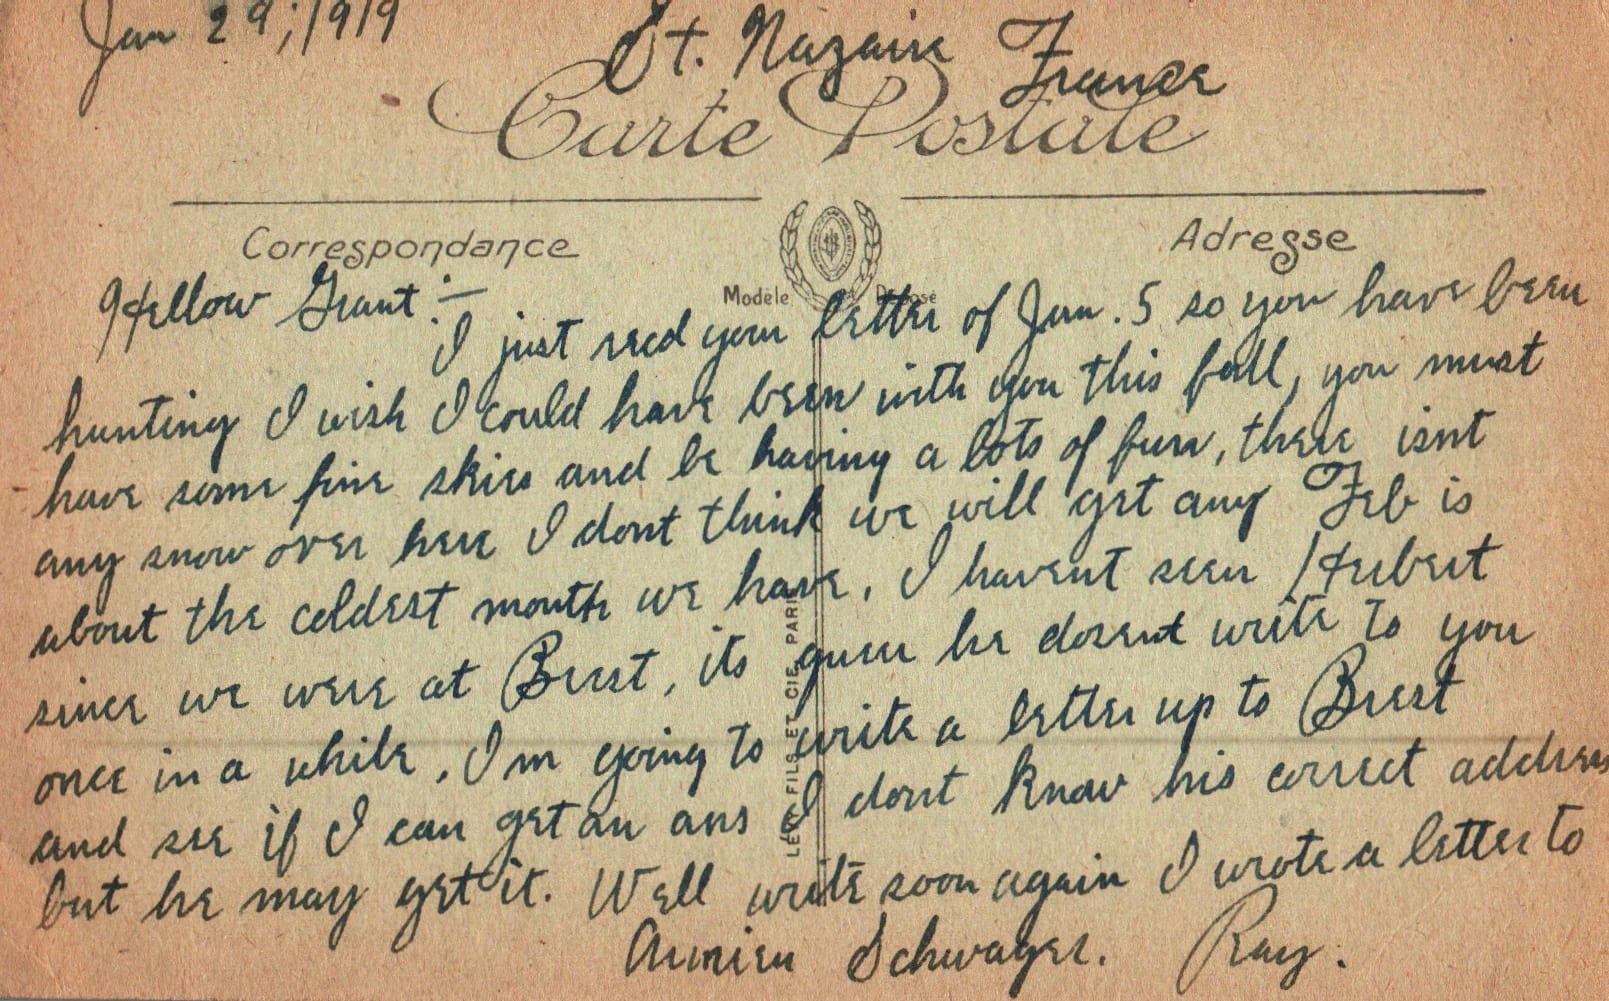 Jan 29, 1919
St. Nazaire France
Carte Postale
Correspondance
Adresse
Modèle Déposé
Hellow Grant :—
I just recd your letter of Jan. 5 so you have been
hunting I wish I could have been with you this fall, you must
have some fine skies and be having a lots of fun, there isnt
any snow over here I dont think we will get any Feb is
about the coldest month we have. I havent seen Herbert
since we were at Brest, its queer he dosent write to you
once in a while. I'm going to write a letter up to Brest
and see if I can get an ans I dont know his correct address
but he may get it. Well write soon again I wrote a letter to
Schwager. Ray.
LÉVY FILS ET CIE, PARIS